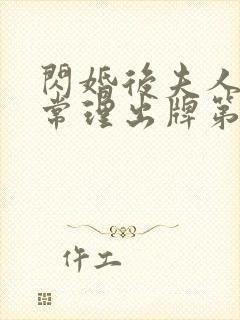 閃婚後夫人
常理出牌第
仵工